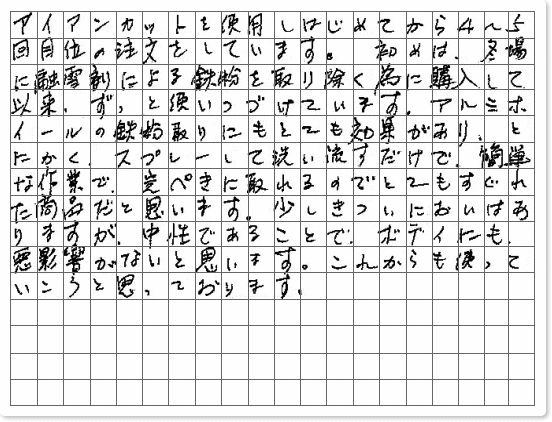 アイアンカットを使用しはじめてから4〜5
回目位の注文をしています。 初めは、冬場
に融雪剤による鉄粉を取り除く為に購入して
以来、ずっと使いつづけています。アルミホ
イールの鉄粉取りにもとても効果があり、と
にかく、スプレーして洗い流すだけで、簡単
な作業で、完ぺきに取れるのでとてもすぐれ
た商品だと思います。少しきついにおいはあ
りますが、中性であることで、ボディにも
悪影響がないと思います。これからも使って
いこうと思っております。